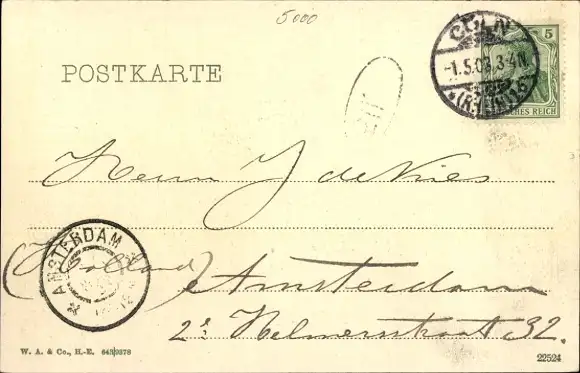 5000
CÖLN
-1.5.03.3-4N.
*(RHEIN)1*
5
DEUTSCHES REICH
POSTKARTE
Herrn J de Vries
AMSTERDAM
(Holland) Amsterdam
2e Helmersstraat 32.
W. A. & Co., H.-E. 643|9378
22524